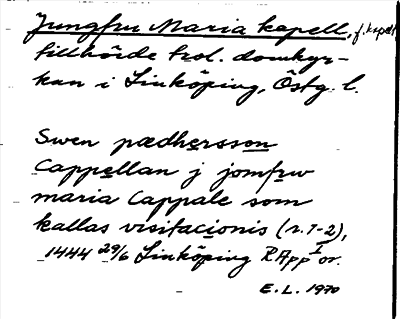 Jungfru Maria kapell, f. kapell
tillhörde trol. domkyr-
kan i Linköping, Östg. l.
Swen pædhersson
Cappellan j jomfrw
maria Cappale som
kallas visitacionis (r. 1-2),
1444 29/6 Linköping RApp I or.
E.L. 1970